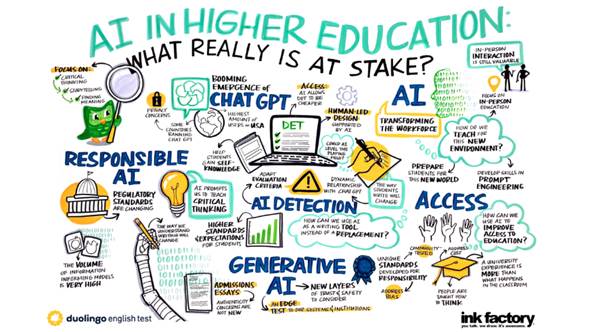 AI IN HIGHER EDUCATION:
WHAT REALLY IS AT STAKE?
FOCUS ON:
CRITICAL
THINKING
STORYTELLING
FINDING
MEANING
PRIVACY
CONCERNS
SOME
COUNTRIES
BANNING
CHAT GPT
BOOMING
EMERGENCE OF
CHAT GPT
HIGHEST
AMOUNT OF
USERS IN USA
HELP
STUDENTS
GAIN SELF-
KNOWLEDGE
ACCESS
AI ALLOWS
DET TO BE
CHEAPER
DET
HUMAN-LED
DESIGN
SUPPORTED
BY AI
COULD AI
LEVEL THE
PLAYING
FIELD?
AI
TRANSFORMING
THE WORKFORCE
IN-PERSON
INTERACTION
IS STILL VALUABLE
FOCUS ON
IN-PERSON
EDUCATION
HOW DO WE
TEACH FOR
THIS NEW
ENVIRONMENT?
PREPARE
STUDENTS FOR
THIS NEW WORLD
DEVELOP SKILLS IN
PROMPT
ENGINEERING
RESPONSIBLE
AI
REGULATORY
STANDARDS
ARE CHANGING
AI PROMPTS
US TO TEACH
CRITICAL
THINKING
ADAPT
EVALUATION
CRITERIA
DYNAMIC
RELATIONSHIP
WITH CHAT GPT
THE WAY
STUDENTS
WRITE WILL
CHANGE
AI DETECTION
HIGHER
STANDARDS
& EXPECTATIONS
FOR STUDENTS
HOW CAN WE USE AI
AS A WRITING TOOL
INSTEAD OF A REPLACEMENT?
ACCESS
HOW CAN WE
USE AI TO
IMPROVE
ACCESS TO
EDUCATION?
ADDRESS
COST
A UNIVERSITY
EXPERIENCE IS
MORE THAN
WHAT HAPPENS
IN THE CLASSROOM
PEOPLE ARE
TAUGHT HOW
TO THINK
THE VOLUME
OF INFORMATION
INFORMING MODELS IS
VERY HIGH
THE WAY WE
UNDERSTAND
WRITING WILL
CHANGE
GENERATIVE
AI
ADMISSIONS
ESSAYS
AUTHENTICITY
CONCERNS ARE
NOT NEW
AN EDGE
NEW LAYERS
OF TRUST & SAFETY
TO CONSIDER
UNIQUE
STANDARDS
DEVELOPED FOR
RESPONSIBILITY
ADDRESS
BIAS
duolingo english test
ink factory
you talk. we draw. it's awesome.